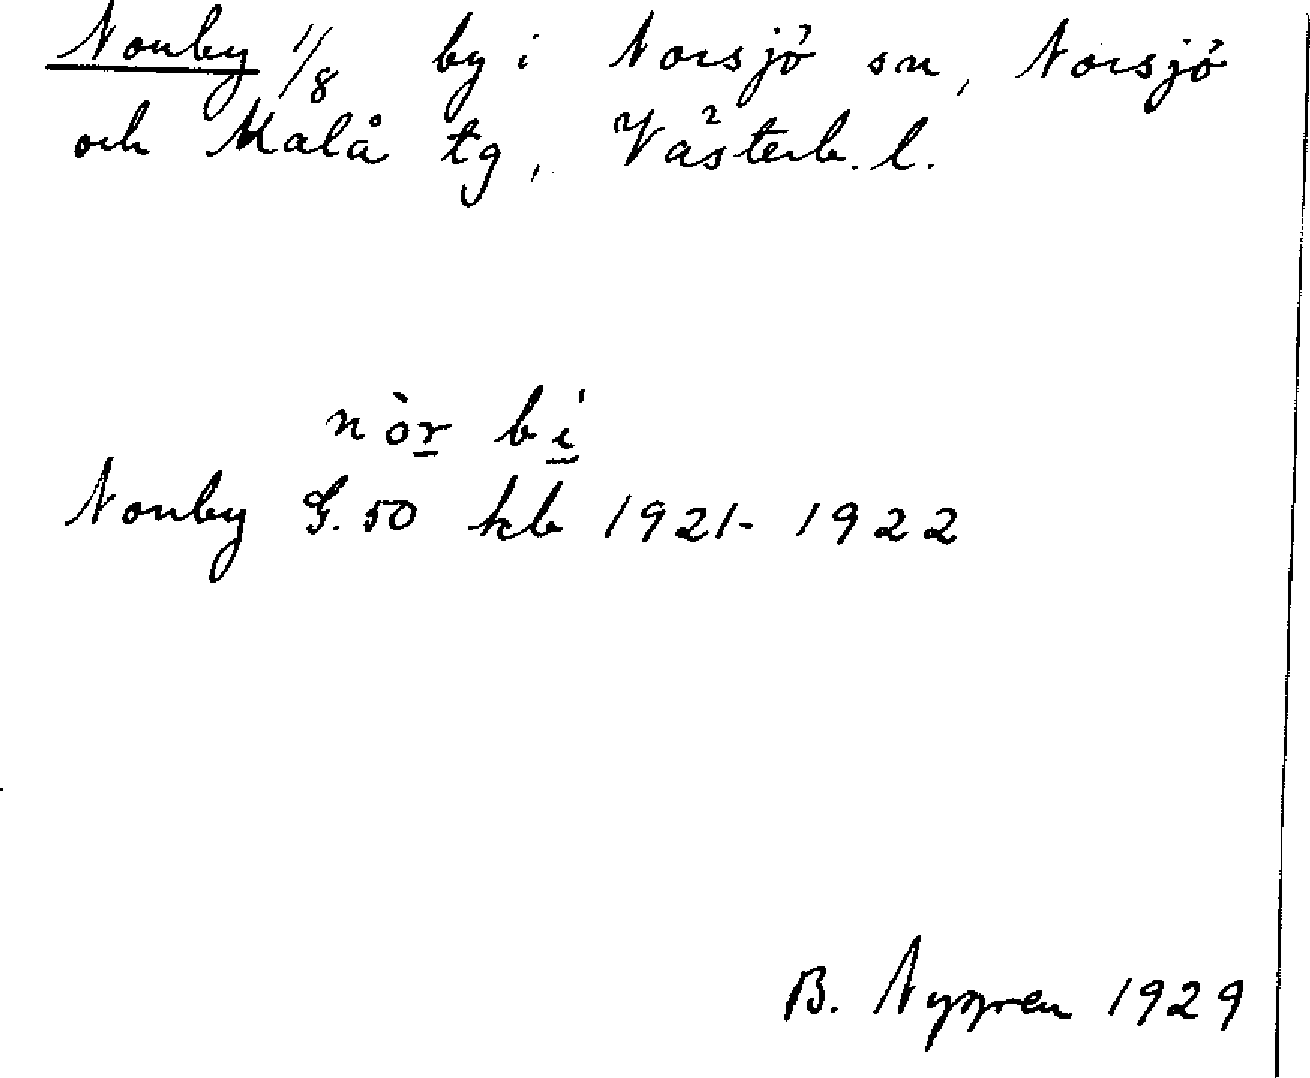 Norrby 1/8 by i Norsjö sn, Norsjö
och Malå tg, Västerb. l.
nòr bi
Norrby S. 50 kb 1921-1922
B. Nygren 1929